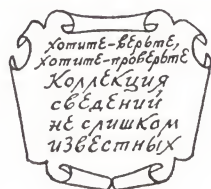 хотите-верьте,
хотите-проверьте
Коллекция
сведений
не слишком
известных